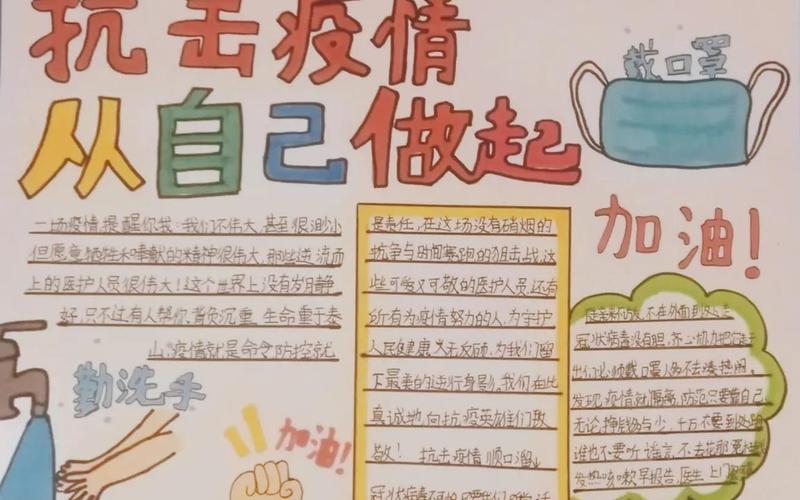 抗击疫情
从自己做起
戴口罩
加油!
一场疫情,提醒你我:我们不伟大,甚至很渺小
但愿意牺牲和奉献的精神很伟大,那些逆流而
上的医护人员很伟大!这个世界上没有岁月静
好,只不过有人帮你背负沉重 生命重于泰
山,疫情就是命令防控就
勤洗手
加油!
是责任,在这场没有硝烟的
抗争与时间赛跑的狙击战,这
些可爱又可敬的医护人员,还有
所有为疫情努力的人,为守护
人民健康义无反顾,为我们留
下最美的逆行身影,我们在此
真诚地,向抗疫英雄们致
敬! 抗击疫情顺口溜
冠状病毒不可怕
不在外面到处走
冠状病毒没有胆,齐心协力把它
出们必须戴口罩 人多不去凑热闹,
发现疫情就 防范只要靠自己
无论挣钱多与少,千万不要到处跑
谁也不要听谣言,不去
发热咳嗽早报告,医生上门